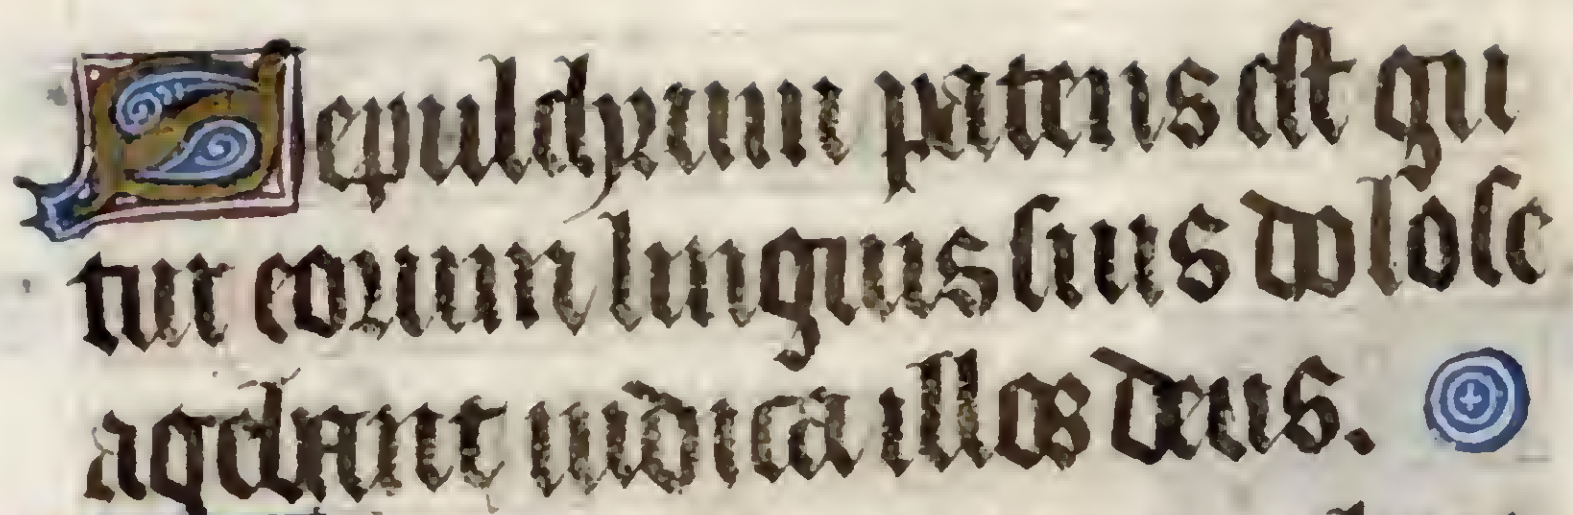 Sepulchrum patens est gu
tur eorum linguis suis dolose
agebant iudica illos deus.